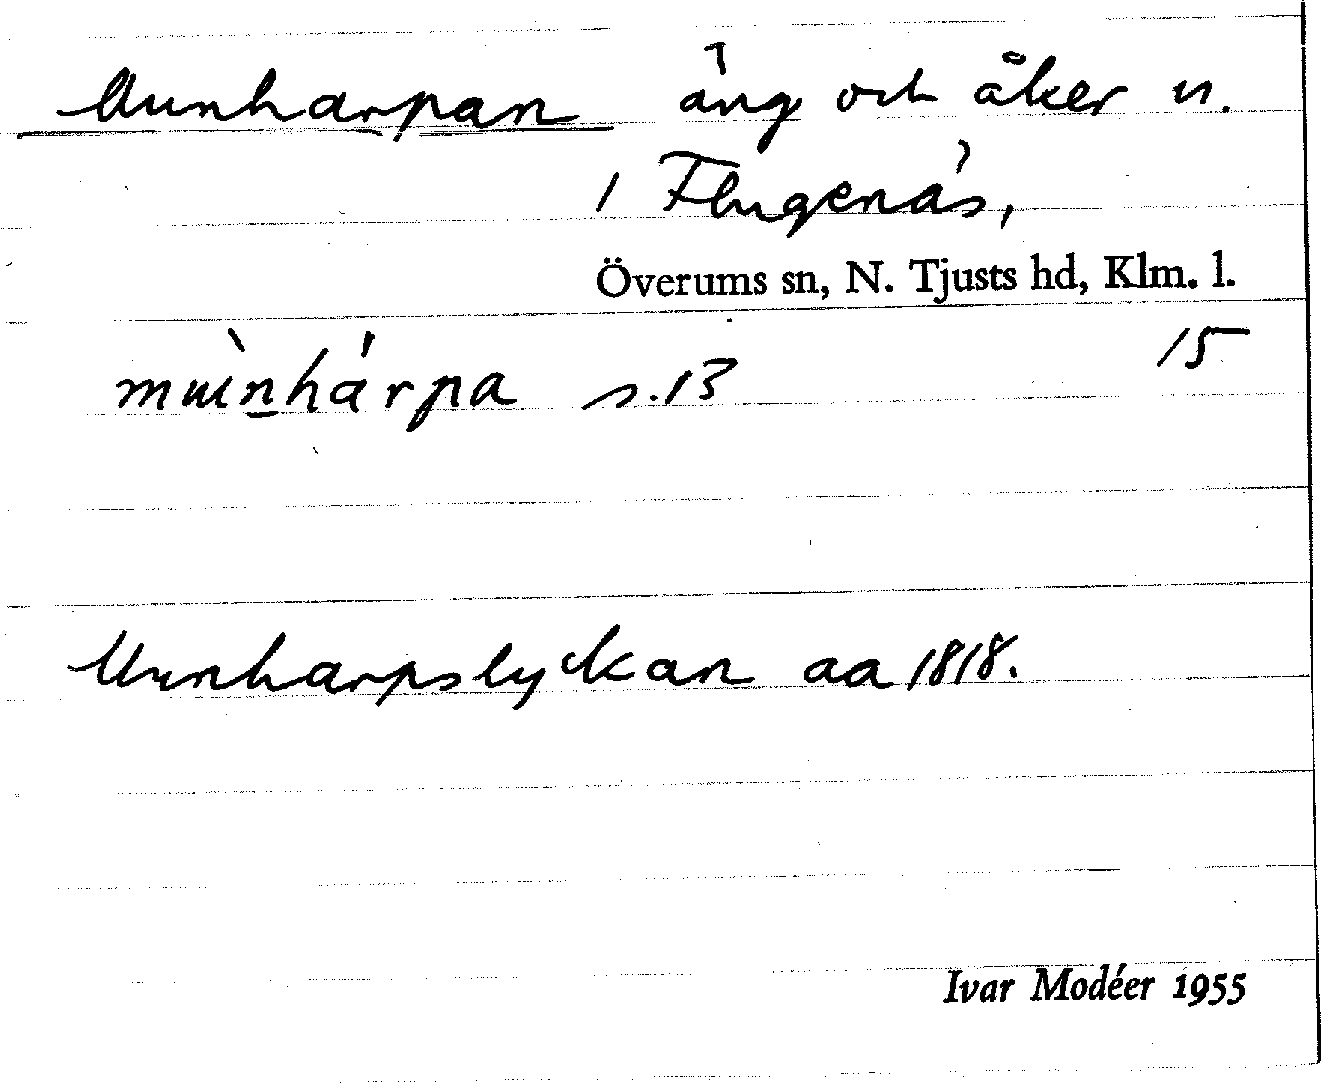 Munharpan äng och åker n.
1 Flugenäs,
Överums sn, N. Tjusts hd, Klm. l.
15
mɯ̀n̲hárpa s. 13
Munharpslyckan aa 1818.
Ivar Modéer 1955